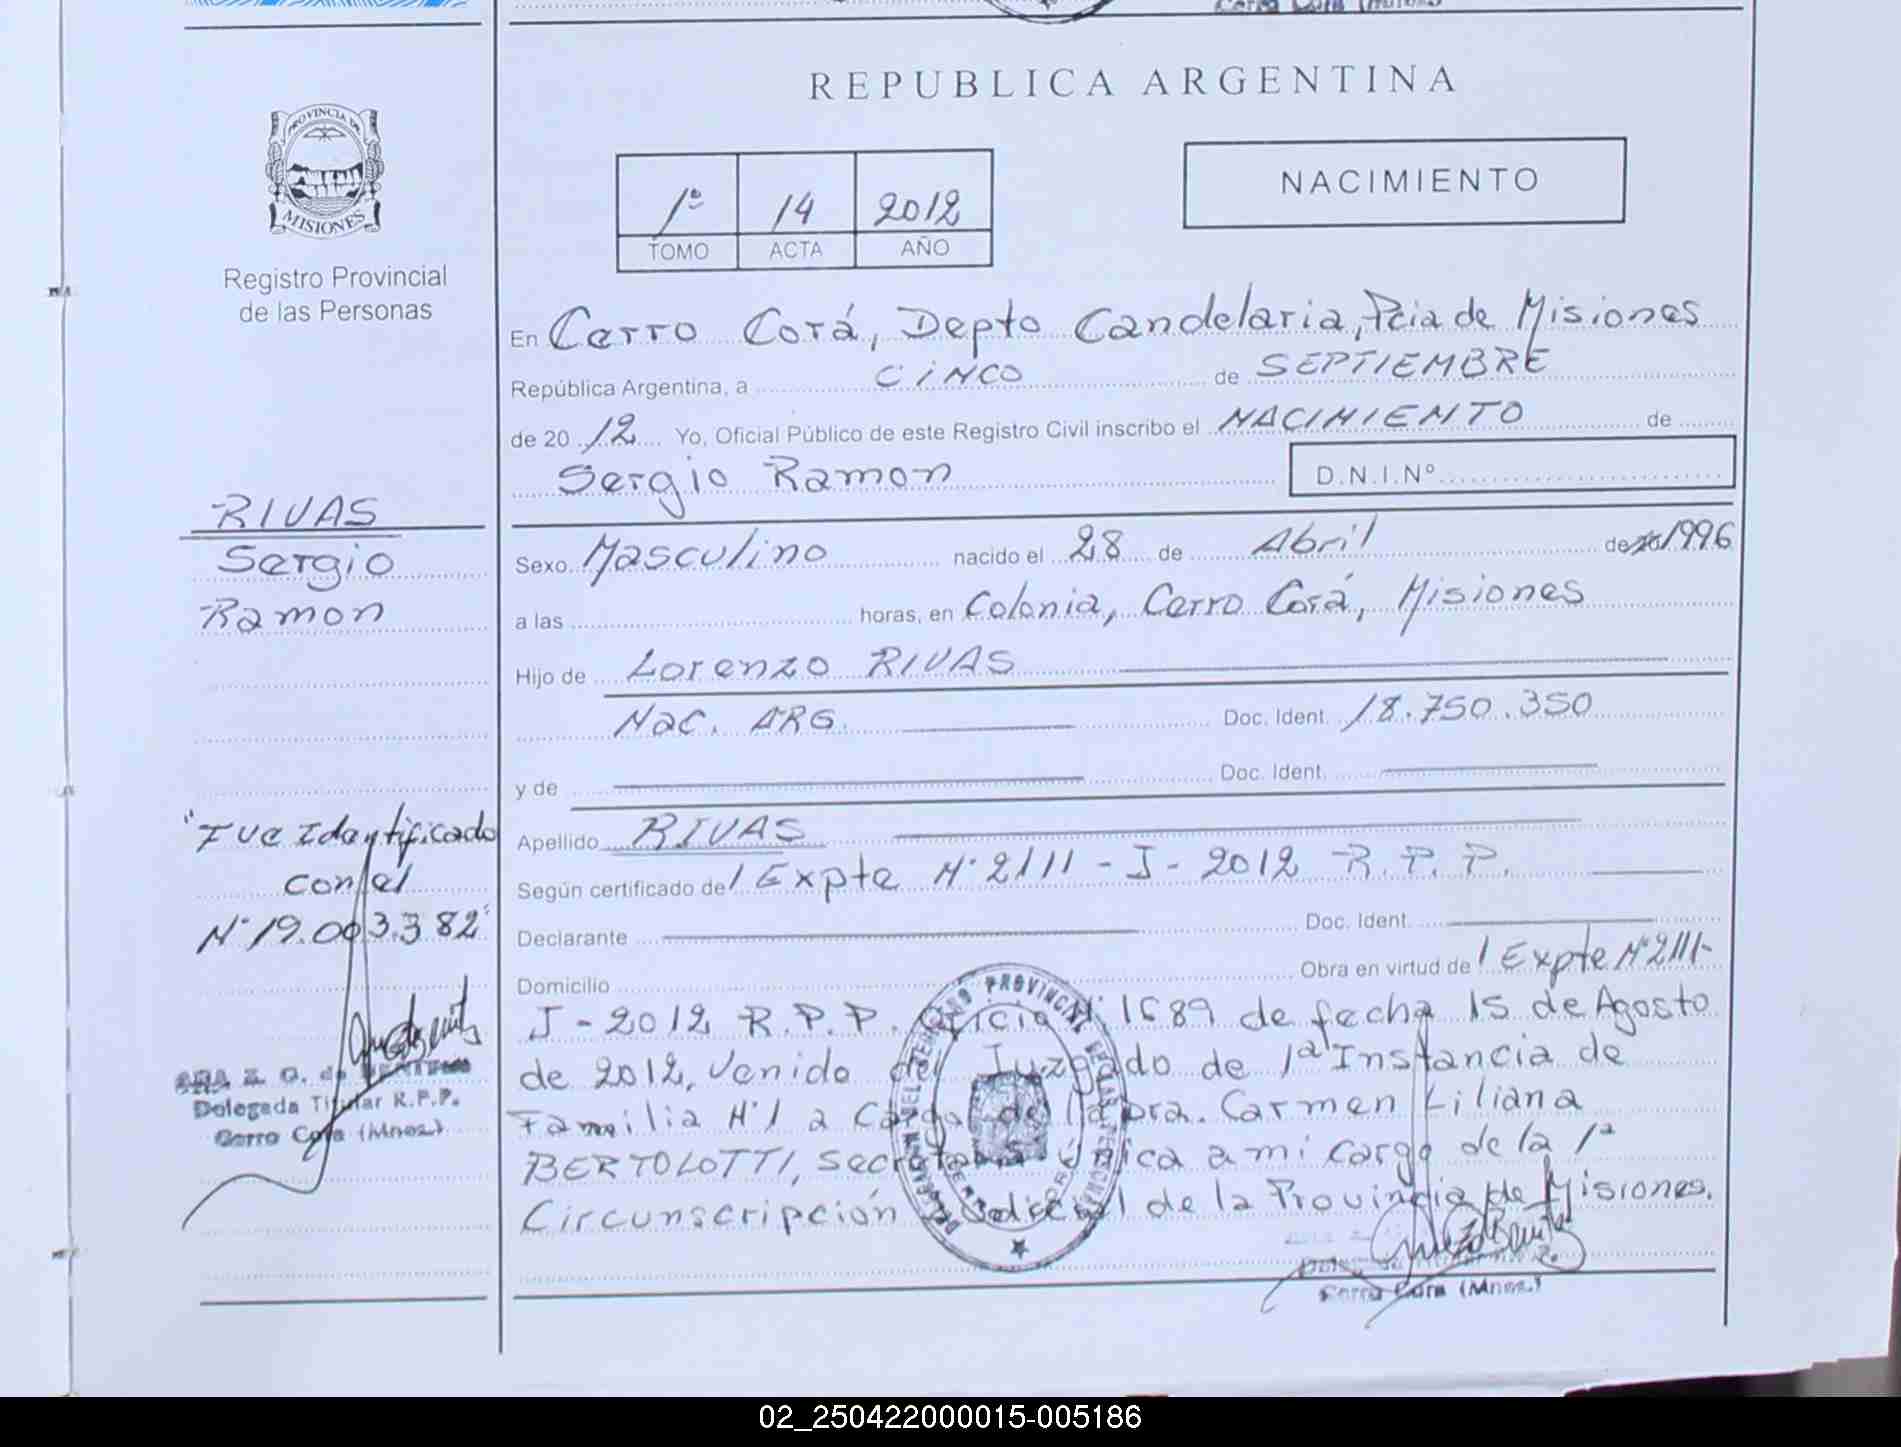 REPUBLICA ARGENTINA
PROVINCIA DE
MISIONES
Registro Provincial
de las Personas
1º 14 2012
TOMO ACTA AÑO
NACIMIENTO
En Cerro Corá, Depto Candelaria, Pcia de Misiones
República Argentina, a CINCO de SEPTIEMBRE
de 20 12 Yo, Oficial Público de este Registro Civil inscribo el NACIMIENTO de
Sergio Ramon D.N.I.Nº
RIVAS
Sergio
Ramon
Sexo Masculino nacido el 28 de Abril de 1996
a las horas, en Colonia, Cerro Corá, Misiones
Hijo de Lorenzo RIVAS
Nac. ARG. Doc. Ident. 18.750.350
y de Doc. Ident.
Apellido RIVAS
Según certificado de / Expte Nº 2111 - J - 2012 R.P.P.
Declarante Doc. Ident.
Domicilio Obra en virtud de / Expte Nº 2111-
J - 2012 R.P.P. Oficio Nº 1689 de fecha 15 de Agosto
de 2012, Venido del Juzgado de 1ª Instancia de
Familia Nº 1 a Cargo de la Dra. Carmen Liliana
BERTOLOTTI, Secretaria Única a mi cargo de la 1ª
Circunscripción Judicial de la Provincia de Misiones.
"Fue Identificado
con el
Nº 19.003.382"
Delegada Titular R.P.P.
Cerro Cora (Mnes.)
Cerro Cora (Mnes.)
02_250422000015-005186